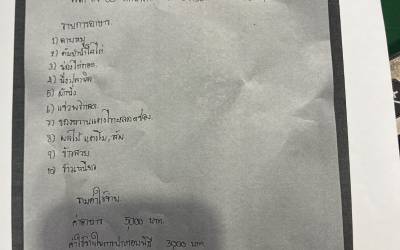 รายการอาหาร
1) ลาบหมู
2)
3) น่องไก่ทอด
4) นึ่งปลานิล
5) ผักนึ่ง
6) แจ่วพริกสด
7)
8) ผลไม้ แตงโม, ส้ม
9) ข้าวสวย
10) ข้าวเหนียว
รวมค่าใช้จ่าย
ค่าอาหาร 5000 บาท
ค่าใช้จ่ายในการประกอบพิธี 3000 บาท